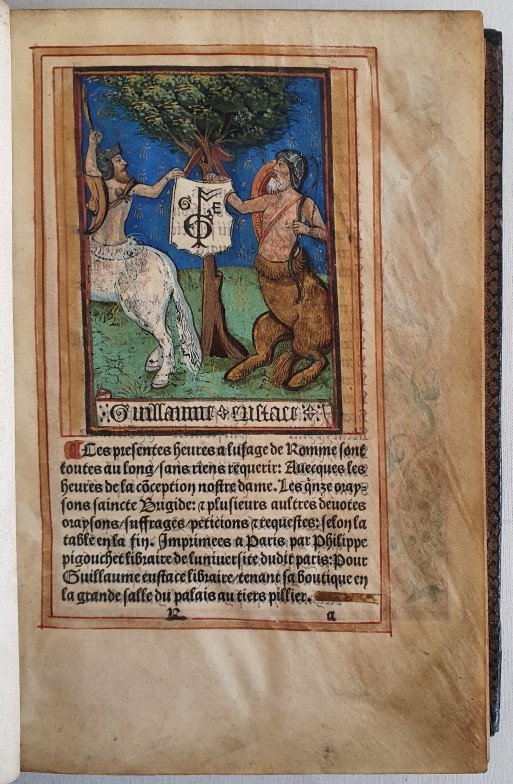 G E
G
Guillaume eustace
Ces presentes heures a lusage de Romme sont
toutes au long/sans riens requerir: Avecques les
heures de la cōception nostre dame. Les qnze oray-
sons saincte Brigide: ⁊ plusieurs aultres devotes
oraysons/suffrages/peticions ⁊ requestes: selon la
table en la fin. Imprimees a Paris par Philippe
pigouchet libraire de luniversite dudit paris: Pour
Guillaume eustace libraire/tenant sa boutique en
la grande salle du palais au tiers pillier.
R a